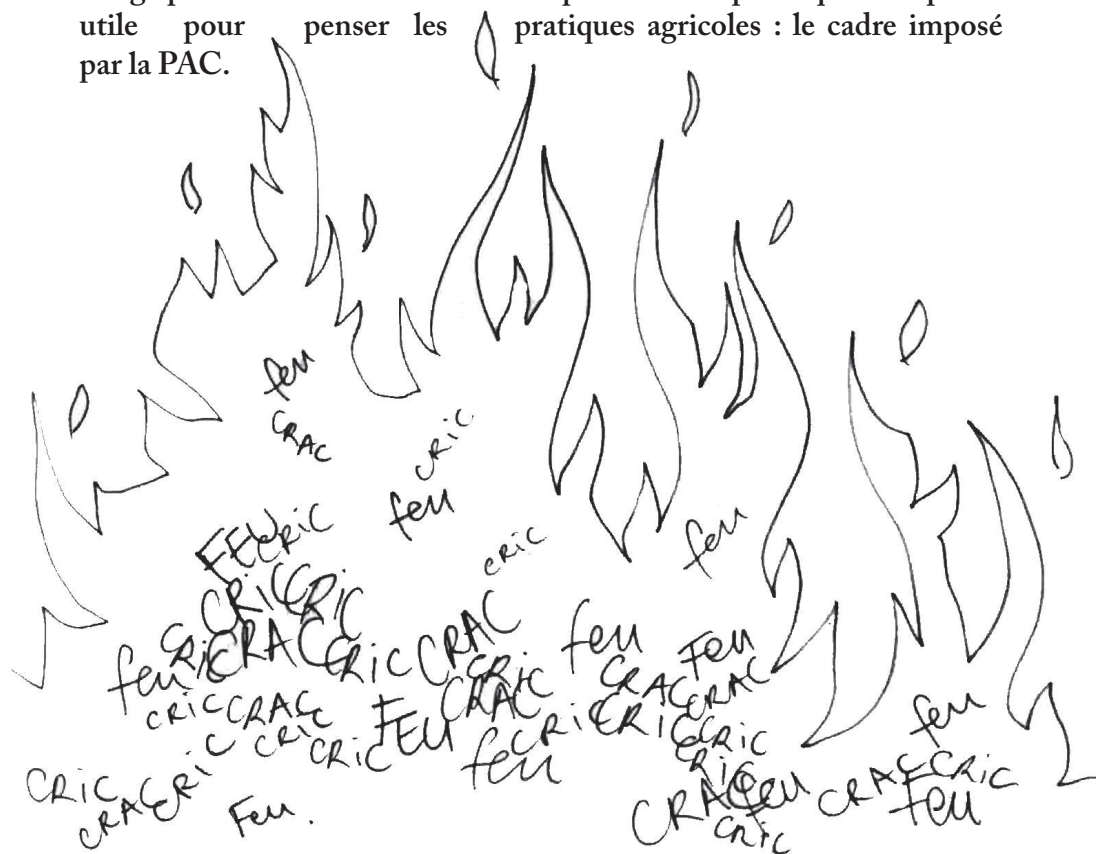 utile pour penser les pratiques agricoles : le cadre imposé
par la PAC.
feu
CRAC
CRiC
feu
FEU CRiC
CRiC
feu
CRiC CRiC
CRiC CRAC CRiC CRAC feu Feu
feu CRiC CRAC CRAC CRAC
CRiC CRAC CRiC CRiC feu
CRiC CRiC FEU CRiC
feu CRiC
CRiC CRAC feu CRAC CRiC
CRAC CRiC Feu. feu
CRiC